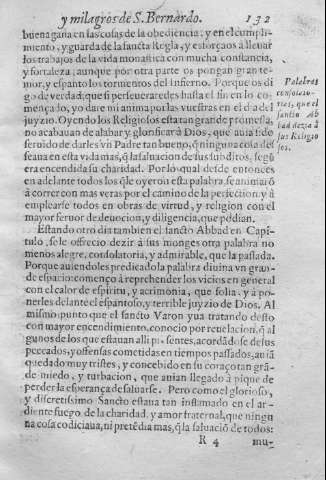 y milagros de S. Bernardo. 132
buena gana en las cosas de la obediencia: y en el cumpli-
miento, y guarda de la sancta Regla, y esforçaos a lleuar
los trabajos de la vida monastica con mucha constancia,
y fortaleza; aunque por otra parte os pongan gran te-
mor, y espanto los tormentos del infierno. Porque os di-
go de verdad, que si perseueraredes hasta el fin en lo co-
mençado, yo dare mi anima por las vuestras en el dia del
juyzio. Oyendo los Religiosos esta tan grande promessa,
no acabauan de alabar y glorificar à Dios, que auia sido
seruido de darles vn Padre tan bueno, q̃ ninguna cosa de-
seaua en esta vida mas, q̃ la saluacion de sus subditos, segũ
era encendida su charidad. Por lo qual desde entonces
en adelante todos los q̃ le oyeron esta palabra, se animarõ
à correr con mas veras por el camino de la perfeccion, y à
emplearse todos en obras de virtud, y religion con el
mayor feruor de deuocion, y diligencia, que podian.
Palabras
consolato-
rias, que el
sancto Ab
bad dezia à
sus Religio
sos.
Estando otro dia tambien el sancto Abbad en Capi-
tulo, se le offrecio dezir à sus monges otra palabra no
menos alegre, consolatoria, y admirable, que la passada.
Porque auiendoles predicado la palabra diuina vn gran-
de espacio: començò à reprehender los vicios en general
con el calor de espiritu, y acrimonia, que solia, y à po-
nerles delante el espantoso, y terrible juyzio de Dios. Al
mismo punto que el sancto Varon yua tratando desto
con mayor encendimiento, conocio por reuelacion, q̃ al
gunos de los que estauan alli presentes, acordãdose de sus
peccados, y offensas cometidas en tiempos passados, auiã
quedado muy tristes, y concebido en su coraçon tan grã-
de miedo, y turbacion, que auian llegado à pique de
perder la esperança de saluarse. Pero como el glorioso,
y discretissimo Sancto estaua tan inflamado en el ar-
diente fuego de la charidad, y amor fraternal, que ningu
na cosa codiciaua, ni pretẽdia mas, q̃ la saluaciõ de todos:
R 4 mu-